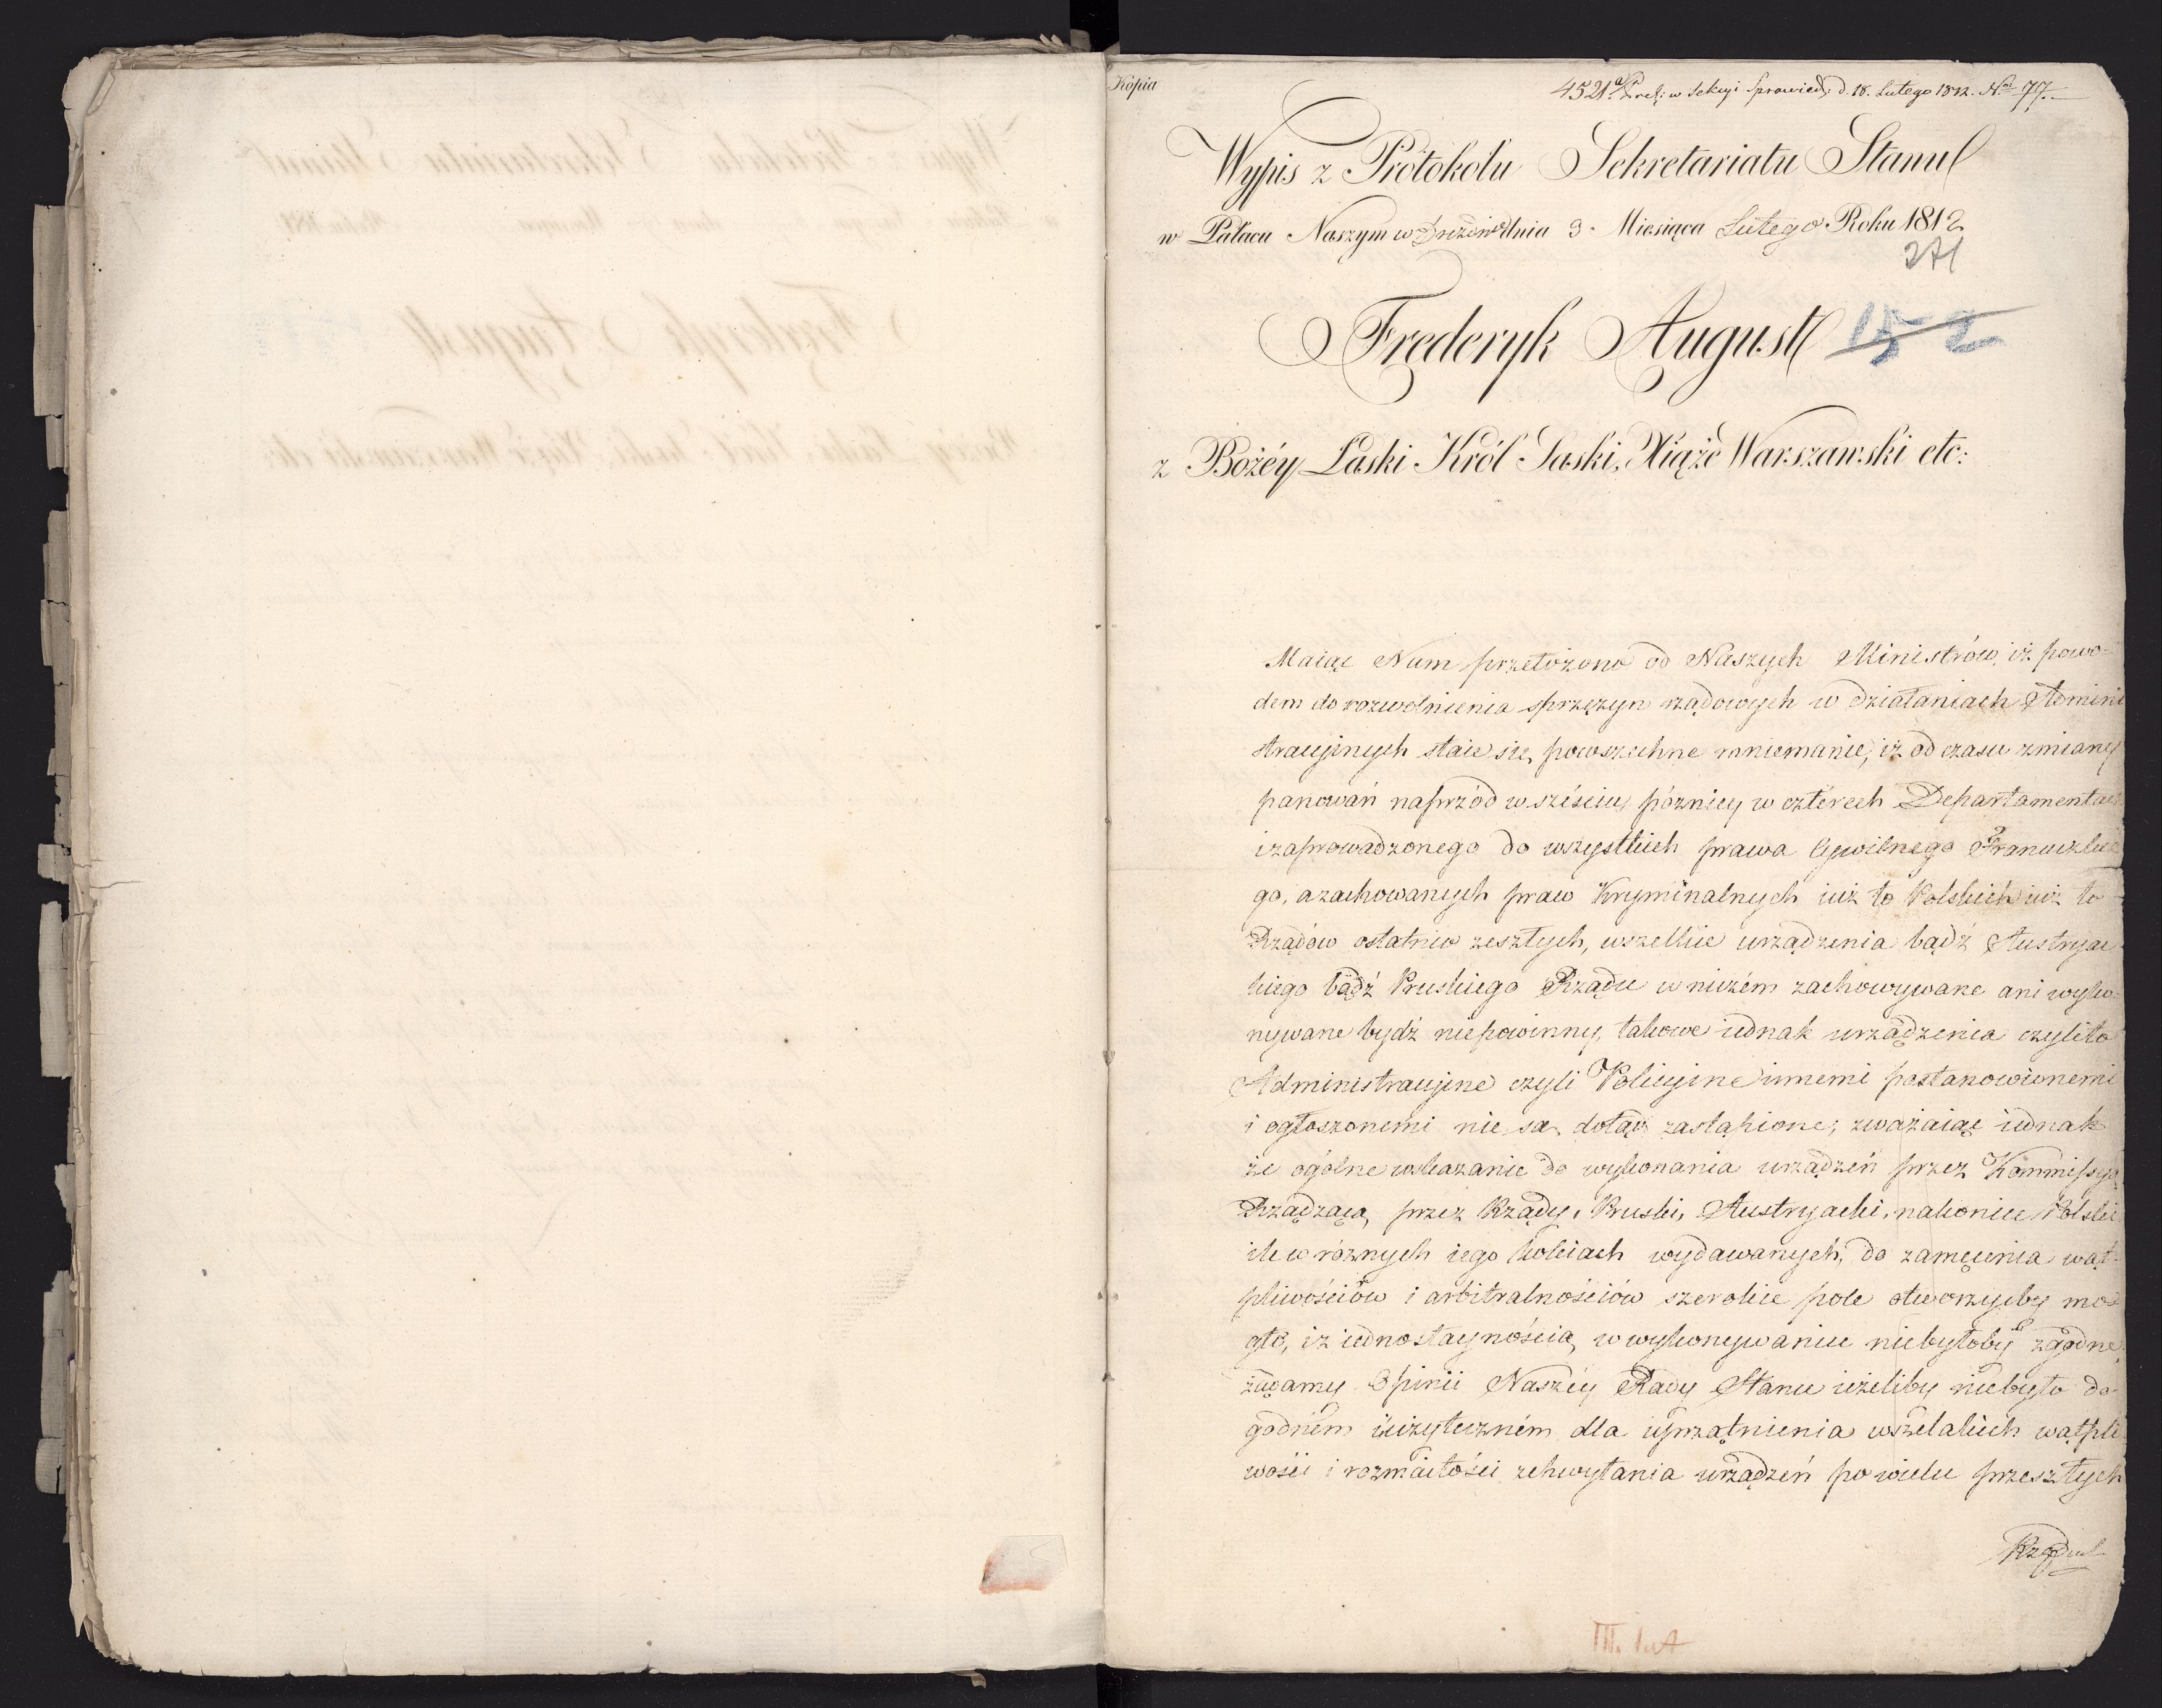 Kopia
4521. w Sekcyi Sprawied: d. 18. Lutego 1812. No 77.
Wypis z Protokołu Sekretariatu Stanu
w Pałacu Naszym w Dreznie dnia 3. Miesiąca Lutego Roku 1812
271
Frederyk August
15 2
z Bożéy Łaski Król Saski, Xiąże Warszawski etc:
Maiąc Nam przełożono od Naszych Ministrów, iż powo-
dem do rozwolnienia sprzężyn rządowych w działaniach Admini
stracyinych staie się powszechne mniemanie, iż od czasu zmiany
panowań naprzód w sześciu, późniey w czterech Departamentach
i zaprowadzonego do wszystkich prawa Cywilnego Francuzkie
go, a zachowanych praw Kryminalnych iuż to Polskich iuż to
Rządów ostatnio zeszłych, wszelkie urządzenia bądź Austryac
kiego bądź Pruskiego Rządu w niczém zachowywane ani wyko-
nywane bydź niepowinny, takowe iednak urządzenia czyli to
Administracyine czyli Policyine innemi postanowionemi
i ogłoszonemi nie są dotąd zastąpione; zważaiąc iednak
że ogólne wskazanie do wykonania urządzeń przez Kommissyą
Rządzącą, przez Rządy, Pruski, Austryacki, nakoniec Polski
ile w różnych iego kolciach wydawanych, do zamęcenia wąt-
pliwościów i arbitralnościów szerokie pole otworzyćby mo-
gło, iż iednostaynością w wykonywaniu niebyłoby zgodne
żądamy Opinii Naszéy Rady Stanu ieżeliby niebyło do-
godném i użyteczném dla uprzątnienia wszelakich wątpli
wości i rozmaitości zchwytania urządzeń po wielu przeszłych
Rządach
III. 1. A